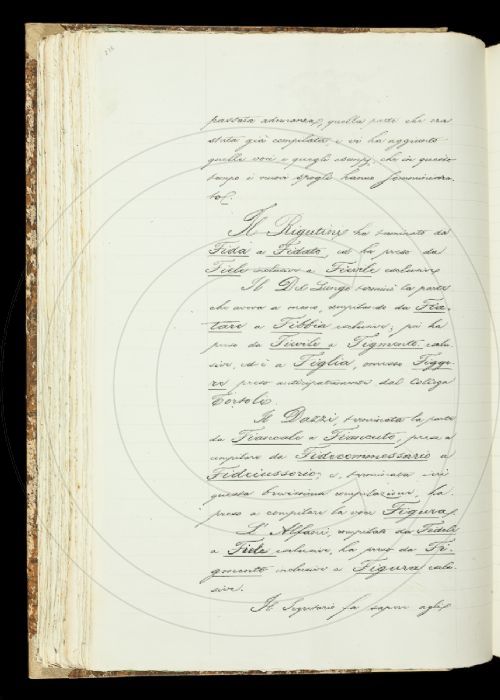 passata adunanza, quella parte che era
stata già compilata, e vi ha aggiunto
quelle voci e quegli esempj, che in questo
tempo i nuovi spogli hanno somministra
to.
Il Rigutini ha terminato da
Fida a Fidato ed ha preso da
Fiele inclusive a Fievole esclusive
Il Del Lungo terminò la parte
che aveva a mano, compilando da Fia-
tare a Fibbia esclusive; poi ha
preso da Fievole a Figmento esclu-
sive, ed è a Figlia, omesso Figge-
re preso anticipatamente dal Collega
Tortoli.
Il Dazzi, terminata la parte
da Fiancale a Fiancuto, prese a
compilare da Fidecommessario a
Fideiussorio; e, terminata
questa brevissima compilazione, ha
preso a compilare la voce Figura.
L'Alfani, compilato da Fidele
a Fiele esclusive, ha preso da Fi-
gmento inclusive a Figura esclu-
sive.
Il Segretario fa sapere agli